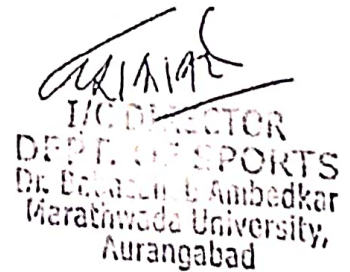 I/C DIRECTOR
DEPT. OF SPORTS
Dr. Babasaheb Ambedkar
Marathwada University,
Aurangabad